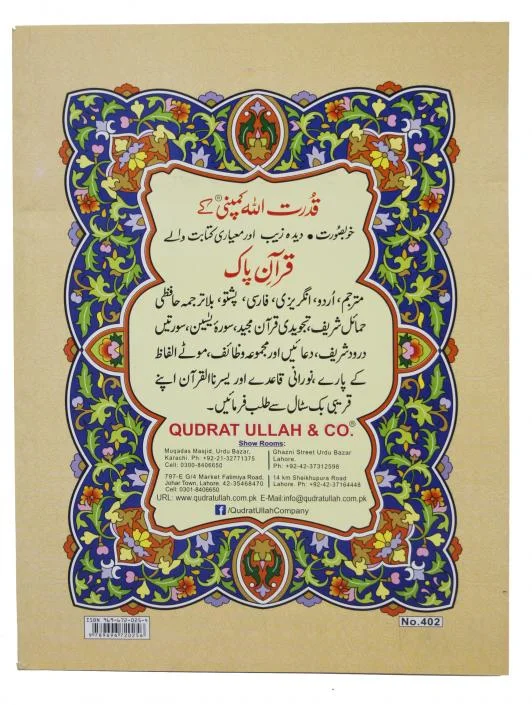 قدرت اللہ کمپنی® کے
خوبصورت • دیدہ زیب اور معیاری کتابت والے
قرآن پاک
مترجم، اُردو، انگریزی، فارسی، پشتو، بلا ترجمہ حافظی
حمائل شریف، تجویدی قرآن مجید، سورۂ یٰسین، سورتیں
درود شریف، دعائیں اور مجموعہ وظائف، موٹے الفاظ
کے پارے، نورانی قاعدے اور یسرنا القرآن اپنے
قریبی بک سٹال سے طلب فرمائیں۔
QUDRAT ULLAH & CO.®
Show Rooms:
Muqadas Masjid, Urdu Bazar,
Karachi. Ph: +92-21-32771375
Cell: 0300-8406650
Ghazni Street Urdu Bazar
Lahore.
Ph: +92-42-37312598
797-E G/4 Market Fatimiya Road,
Johar Town, Lahore. 42-35468470
Cell: 0301-8406650
14 km Sheikhupura Road
Lahore. Ph: +92-42-37164448
URL: www.qudratullah.com.pk E-Mail:info@qudratullah.com.pk
f /QudratUllahCompany
ISBN 969-672-025-4
9 789696 720256
No.402